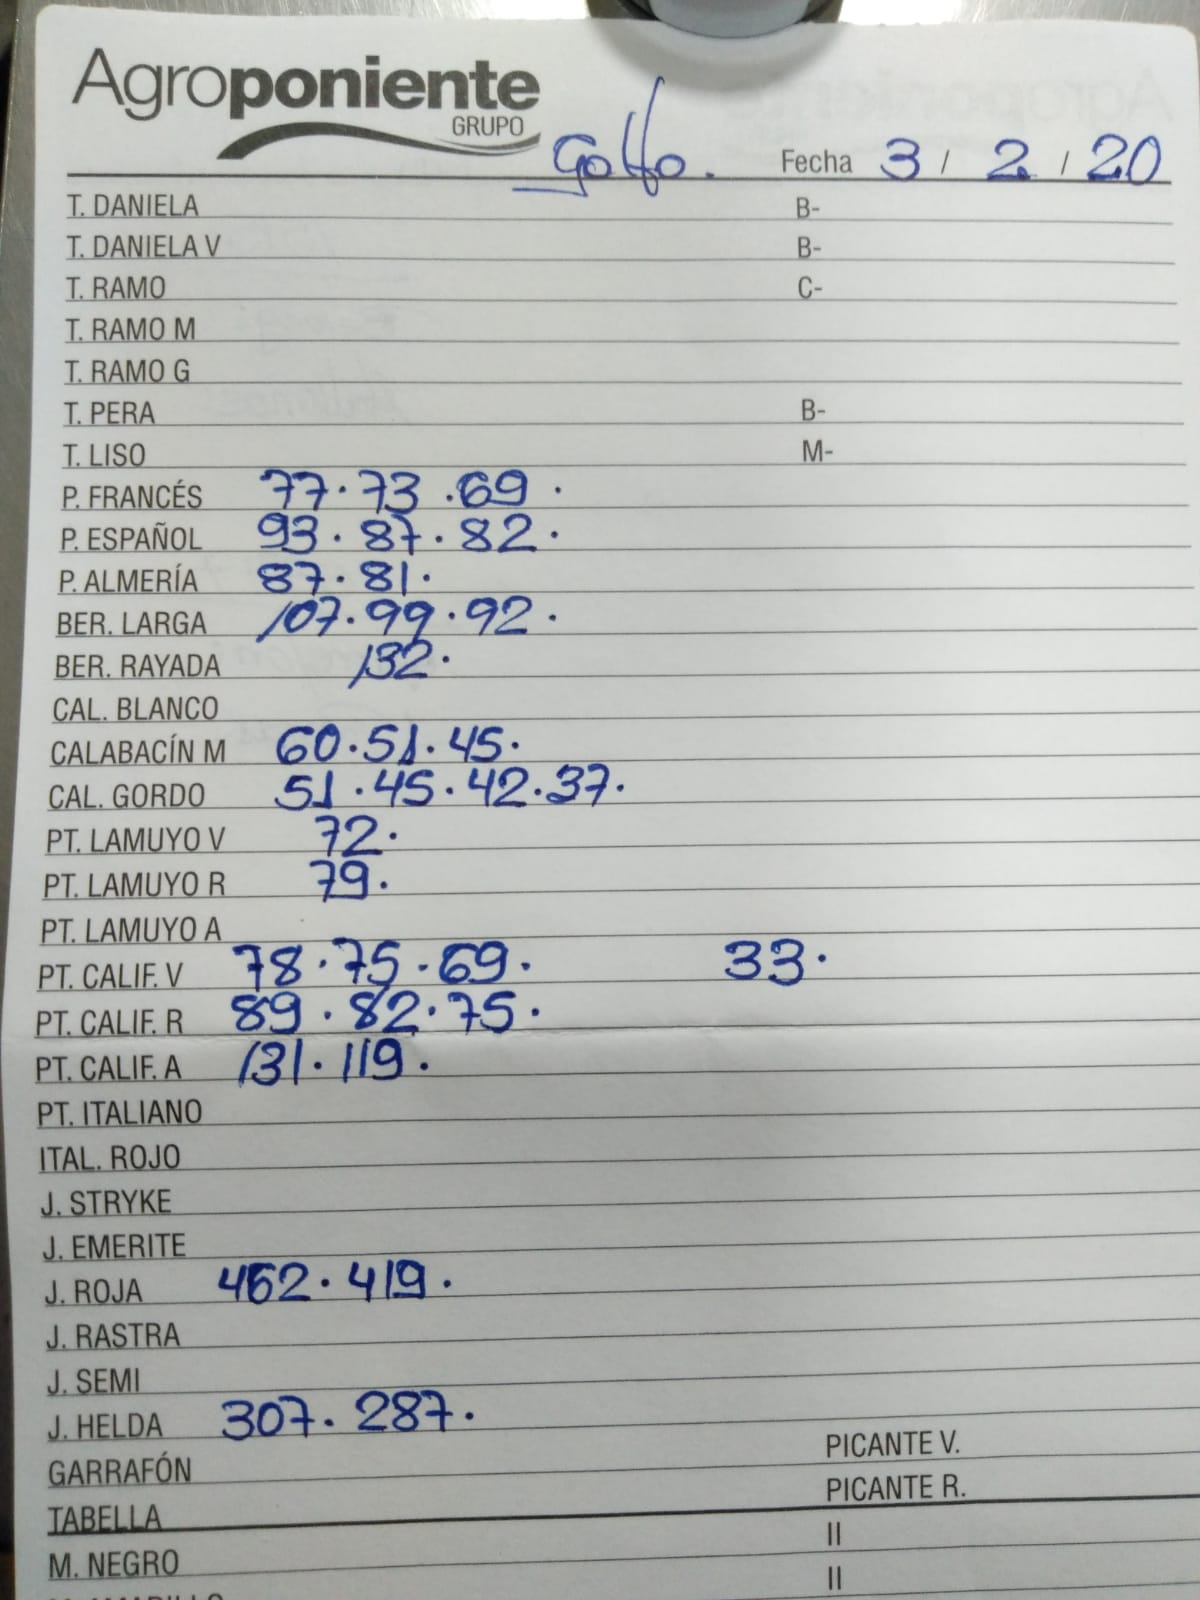 Agroponiente
GRUPO
Golfo. Fecha 3 / 2 / 20
T. DANIELA B-
T. DANIELA V B-
T. RAMO C-
T. RAMO M
T. RAMO G
T. PERA B-
T. LISO M-
P. FRANCÉS 77. 73. 69.
P. ESPAÑOL 93. 87. 82.
P. ALMERÍA 87. 81.
BER. LARGA 107. 99. 92.
BER. RAYADA 132.
CAL. BLANCO
CALABACÍN M 60. 51. 45.
CAL. GORDO 51. 45. 42. 37.
PT. LAMUYO V 72.
PT. LAMUYO R 79.
PT. LAMUYO A
PT. CALIF. V 78. 75. 69. 33.
PT. CALIF. R 89. 82. 75.
PT. CALIF. A 131. 119.
PT. ITALIANO
ITAL. ROJO
J. STRYKE
J. EMERITE
J. ROJA 462. 419.
J. RASTRA
J. SEMI
J. HELDA 307. 287.
GARRAFÓN PICANTE V.
TABELLA PICANTE R.
M. NEGRO II
II